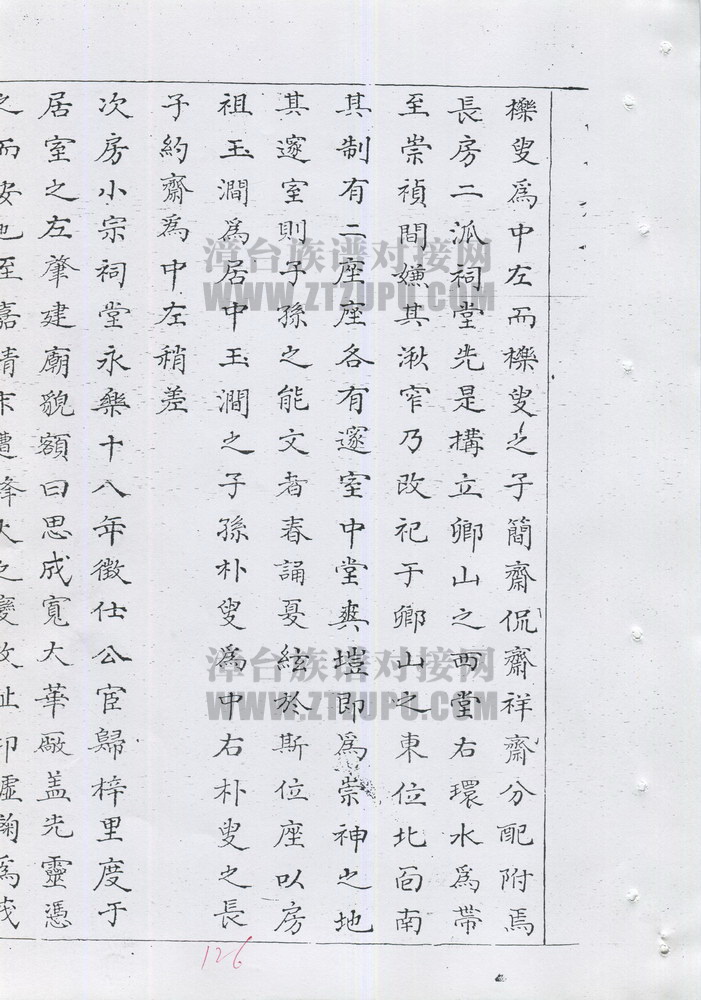 櫟叟為中左而櫟叟之子簡齋侃齋祥齋分配附焉
長房二派祠堂先是搆立鄉山之西堂右環水為帶
至崇禎間嫌其湫窄乃改祀于鄉山之東位北面南
其制有二座座各有邃室中堂爽塏即為崇神之地
其邃室則子孫之能文者春誦夏絃於斯位座以房
祖玉澗為居中玉澗之子孫朴叟為中右朴叟之長
子約齋為中左稍差
次房小宗祠堂永樂十八年徵仕公宦歸梓里度于
居室之左肇建廟貌額曰思成寬大華厰盖先靈憑
之而安也至嘉靖末遭烽火之變故址卬虛鞠為茂
漳台族谱对接网
WWW.ZTZUPU.COM
漳台族谱对接网
WWW.ZTZUPU.COM
126